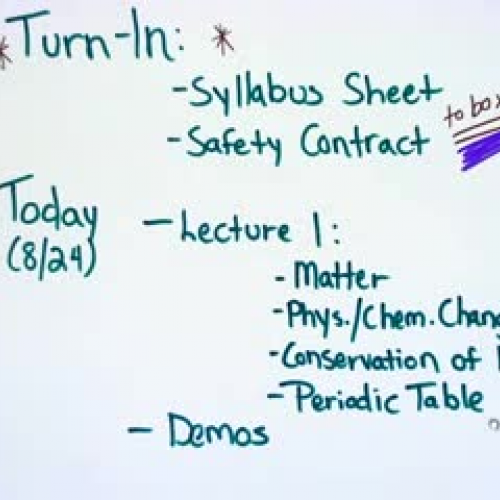 * Turn-In: *
- Syllabus Sheet
- Safety Contract
to box
Today
(8/24)
- Lecture 1:
- Matter
- Phys./Chem. Chang
- Conservation of
- Periodic Table
- Demos